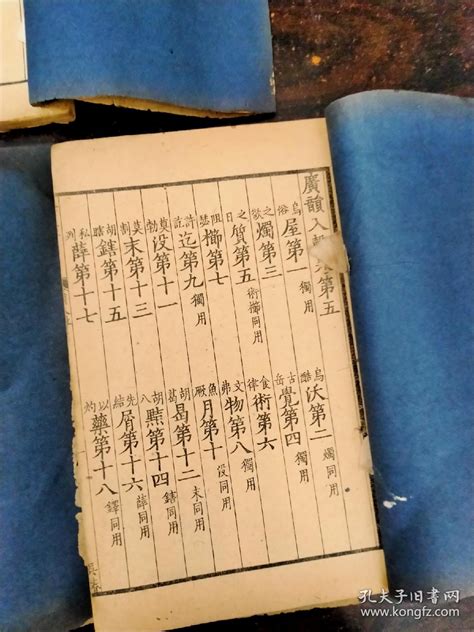 廣韻入第五
烏屋第一獨用 烏酷沃第二燭同用
之欲燭第三 古岳覺第四獨用
之日質第五術櫛同用 食律術第六
阻瑟櫛第七 文弗物第八獨用
許訖迄第九獨用 魚厥月第十沒同用
莫勃沒第十一 胡葛曷第十二末同用
莫割末第十三 胡八黠第十四鎋同用
胡瞎鎋第十五 先結屑第十六薛同用
私列薛第十七 以灼藥第十八鐸同用
孔夫子旧书网
www.kongfz.com